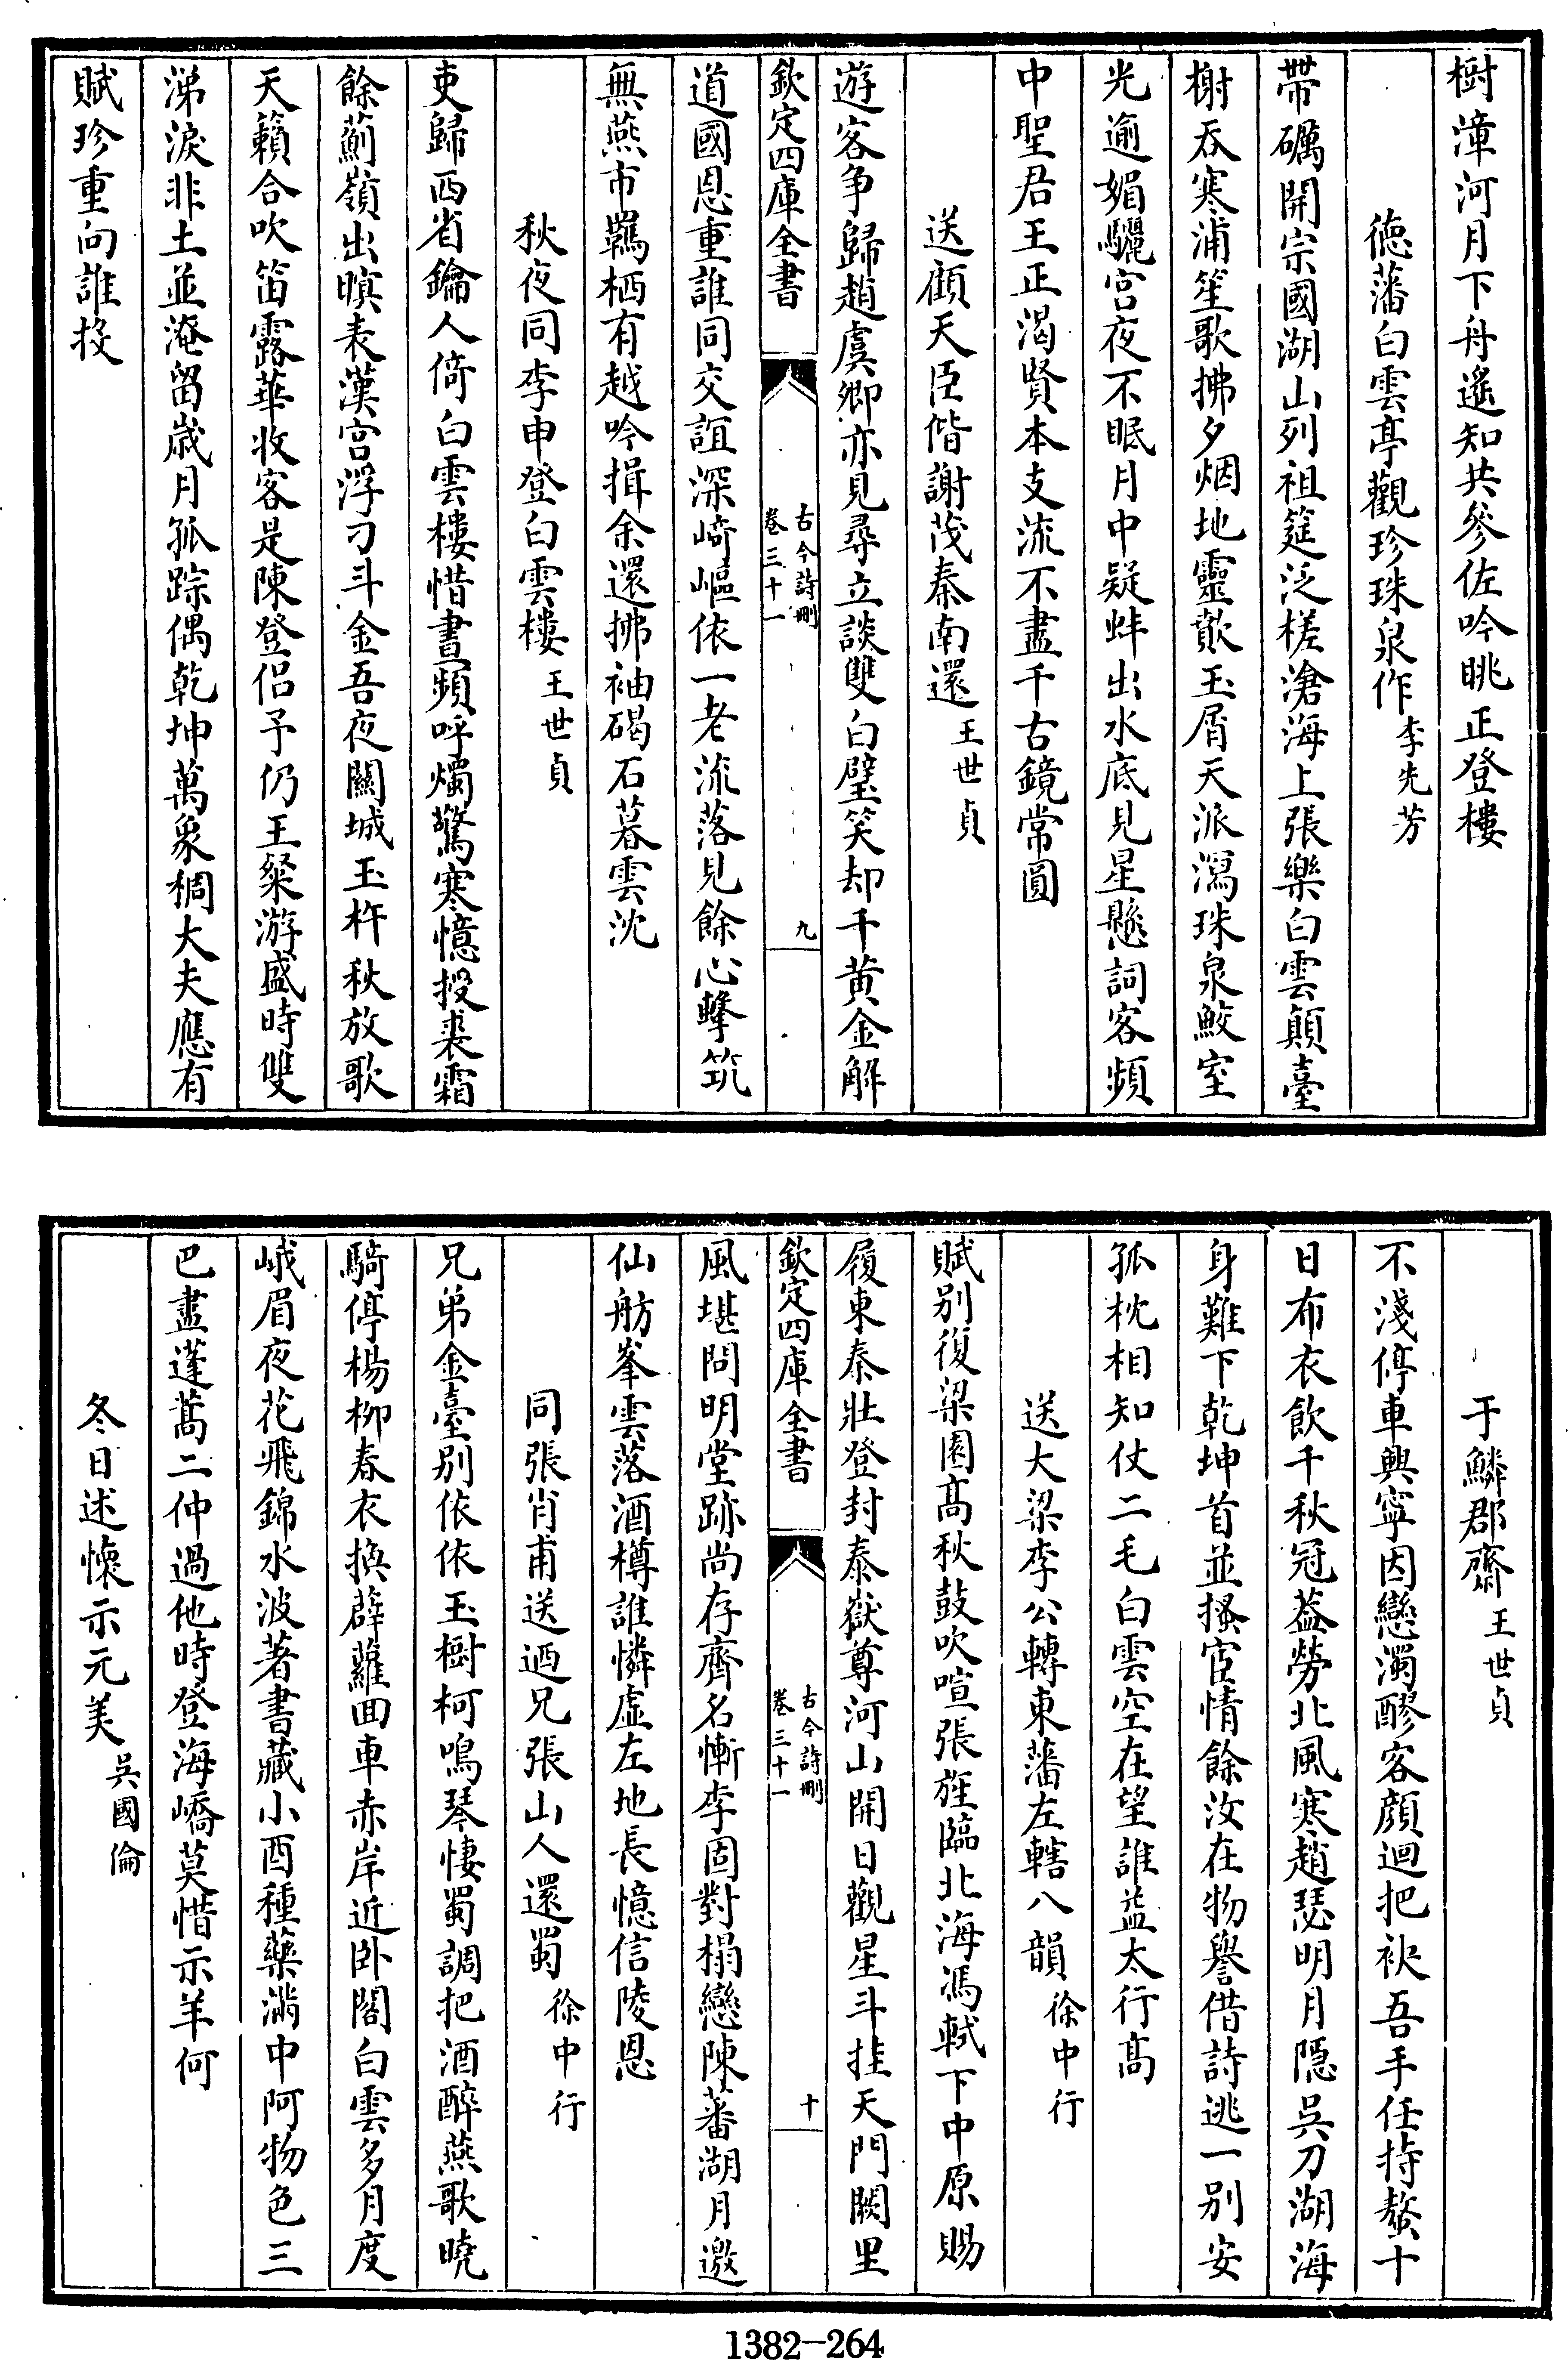 樹漳河月下舟遙知共參佐吟眺正登樓
德藩白雲亭觀珍珠泉作李先芳
帶礪開宗國湖山列祖筵泛槎滄海上張樂白雲顛臺
榭吞寒浦笙歌拂夕烟地靈歕玉屑天派瀉珠泉鮫室
光逾媚驪宮夜不眠月中疑蚌出水底見星懸詞客頻
中聖君王正渴賢本支流不盡千古鏡常圓
送顧天臣偕謝茂秦南還王世貞
遊客爭歸趙虞卿亦見尋立談雙白璧笑却千黃金解
欽定四庫全書
古今詩刪
卷三十一
九
道國恩重誰同交誼深崎嶇依一老流落見餘心擊筑
無燕市羈栖有越吟揖余還拂袖碣石暮雲沈
秋夜同李申登白雲樓王世貞
吏歸西省鑰人倚白雲樓惜晝頻呼燭驚寒憶授裘霜
餘薊嶺出暝表漢宮浮刁斗金吾夜關城玉杵秋放歌
天籟合吹笛露華收客是陳登侶予仍王粲游盛時雙
涕淚非土並淹留歲月孤踪偶乾坤萬象稠大夫應有
賦珍重向誰投
于鱗郡齋王世貞
不淺停車興寧因戀濁醪客顏迴把袂吾手任持螯十
日布衣飲千秋冠蓋勞北風寒趙瑟明月隱吳刀湖海
身難下乾坤首並搔宦情餘汝在物譽借詩逃一別安
孤枕相知仗二毛白雲空在望誰益太行高
送大梁李公轉東藩左轄八韻徐中行
賦別復梁園高秋鼓吹喧張旌臨北海馮軾下中原賜
履東秦壯登封泰嶽尊河山開日觀星斗挂天門闕里
欽定四庫全書
古今詩刪
卷三十一
十
風堪問明堂跡尚存齊名慚李固對榻戀陳蕃湖月邀
仙舫峯雲落酒樽誰憐虛左地長憶信陵恩
同張肖甫送迺兄張山人還蜀徐中行
兄弟金臺別依依玉樹柯鳴琴悽蜀調把酒醉燕歌曉
騎停楊柳春衣換薜蘿囬車赤岸近卧閣白雲多月度
峨眉夜花飛錦水波著書藏小酉種藥滿中阿物色三
巴盡蓬蒿二仲過他時登海嶠莫惜示羊何
冬日述懷示元美吳國倫
1382-264